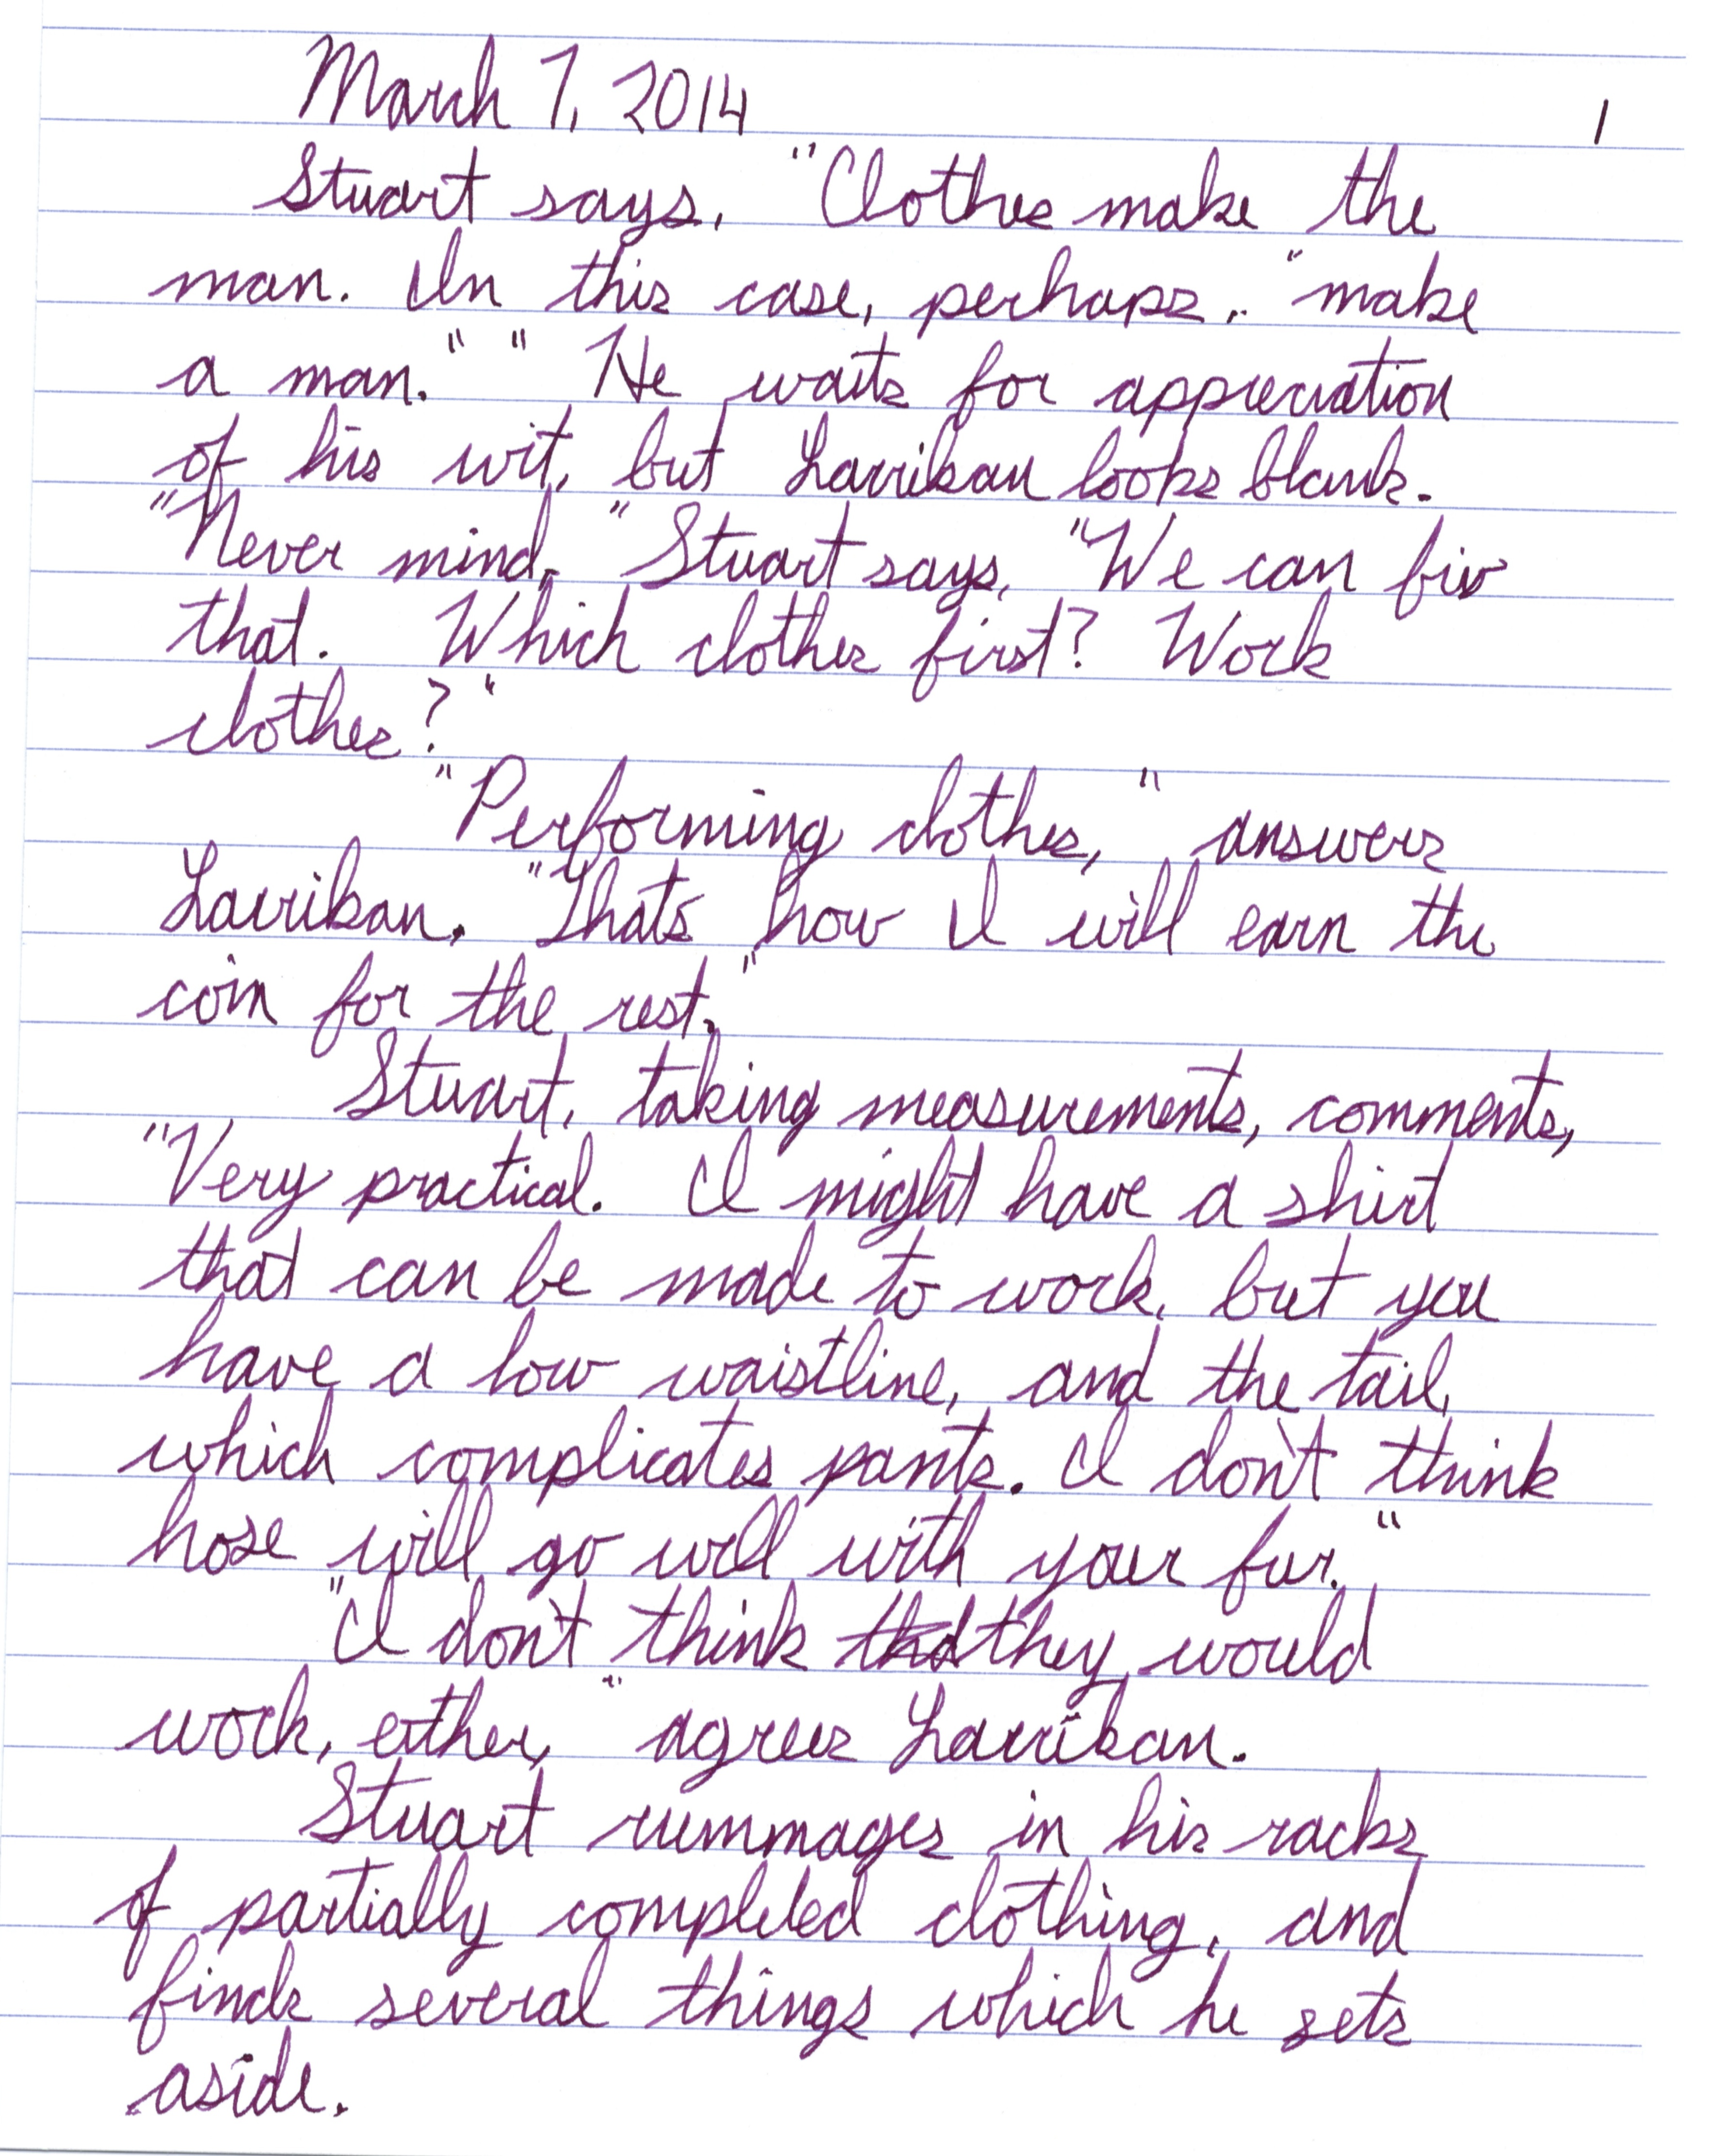 March 7, 2014 1
Stuart says, "Clothes make the
man. In this case, perhaps, "make
a man." " He waits for appreciation
of his wit, but Larrikan looks blank.
"Never mind," Stuart says, "We can fix
that. Which clothes first? Work
clothes?"
"Performing clothes," answers
Larrikan. "Thats how I will earn the
coin for the rest."
Stuart, taking measurements, comments,
"Very practical. I might have a shirt
that can be made to work, but you
have a low waistline, and the tail,
which complicates pants. I don't think
hose will go well with your fur."
"I don't think they would
work, either," agrees Larrikan.
Stuart rummages in his racks
of partially completed clothing, and
finds several things which he sets
aside.